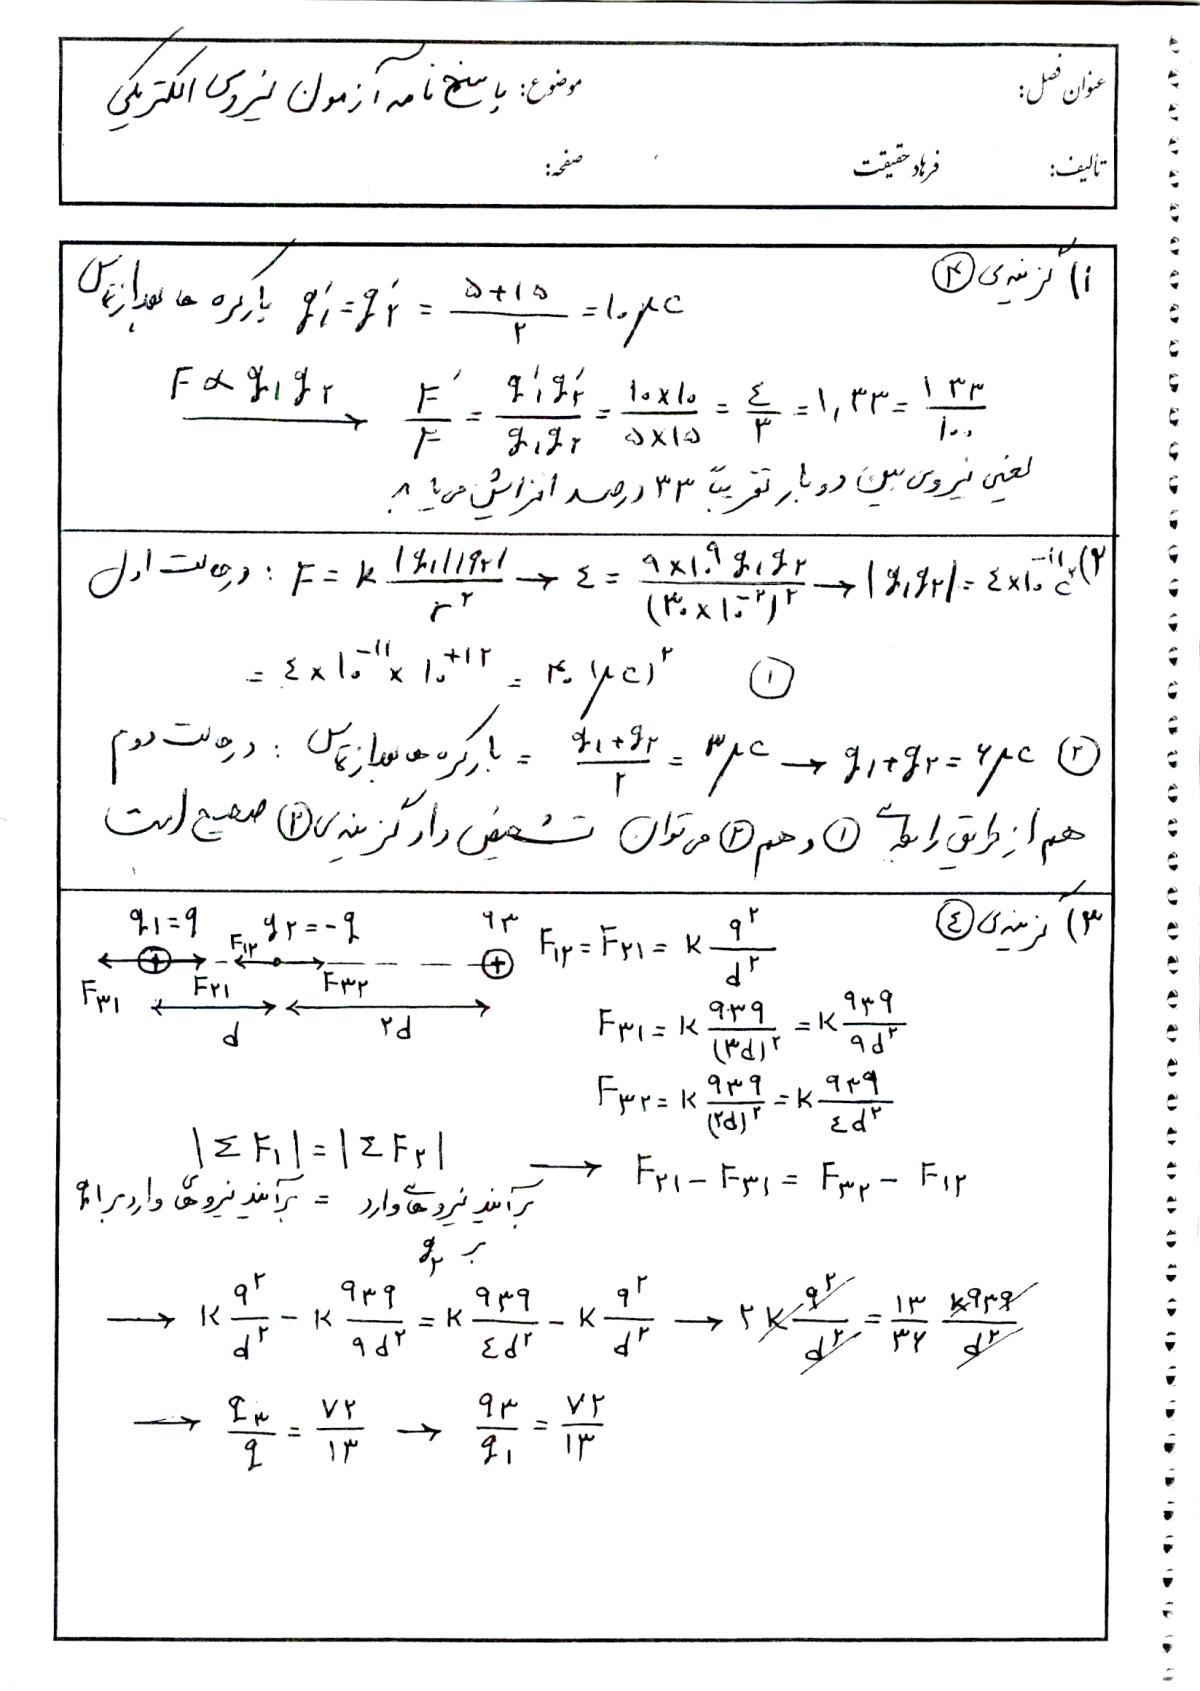 عنوان فصل: موضوع: پاسخ نامه آزمون نیروی الکتریکی
تألیف: فرهاد حقیقت صفحه:
۱) گزینه‌ی ۳
بار کره ها بعد از تماس q'۱ = q'۲ = (۵+۱۵)/۲ = ۱۰ μC
F ∝ q۱q۲ → F'/F = q'۱q'۲/q۱q۲ = ۱۰×۱۰/۵×۱۵ = ۴/۳ = ۱,۳۳ = ۱۳۳/۱۰۰
یعنی نیروی بین دو بار تقریباً ۳۳ درصد افزایش می یابد
۲) در حالت اول : F = k |q۱||q۲|/r^۲ → ۴ = ۹×۱۰^۹ q۱q۲/(۳۰×۱۰^-۲)^۲ → |q۱q۲| = ۴×۱۰^-۱۱ C^۲
= ۴×۱۰^-۱۱ × ۱۰^+۱۲ = ۴۰ (μC)^۲ ①
در حالت دوم : بار کره ها بعد از تماس = (q۱+q۲)/۲ = ۳μC → q۱+q۲ = ۶μC ②
هم از طریق رابطه‌ی ① و هم ② می توان تشخیص داد گزینه‌ی ② صحیح است
۳) گزینه‌ی ۴
q۱=q q۲=-q q۳
F۱۲ F۳۱ F۲۱ F۳۲
d ۲d
F۱۲ = F۲۱ = k q^۲/d^۲
F۳۱ = k q۳q/(۳d)^۲ = k q۳q/۹d^۲
F۳۲ = k q۳q/(۲d)^۲ = k q۳q/۴d^۲
|ΣF۱| = |ΣF۲| → F۲۱ − F۳۱ = F۳۲ − F۱۲
برآیند نیروهای وارد بر q۱ = برآیند نیروهای وارد
بر q۲
→ k q^۲/d^۲ − k q۳q/۹d^۲ = k q۳q/۴d^۲ − k q^۲/d^۲ → ۲k q^۲/d^۲ = ۱۳/۳۶ kq۳q/d^۲
→ q۳/q = ۷۲/۱۳ → q۳/q۱ = ۷۲/۱۳